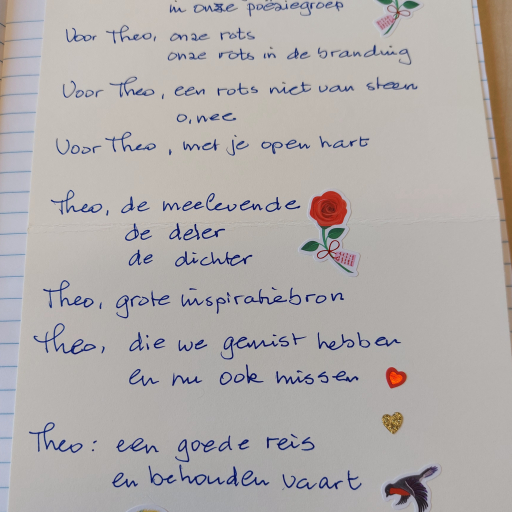 in onze poëziegroep
Voor Theo, onze rots
onze rots in de branding
Voor Theo, een rots niet van steen
o, nee
Voor Theo, met je open hart
Theo, de meelevende
de deler
de dichter
Theo, grote inspiratiebron
Theo, die we gemist hebben
en nu ook missen
Theo: een goede reis
en behouden vaart